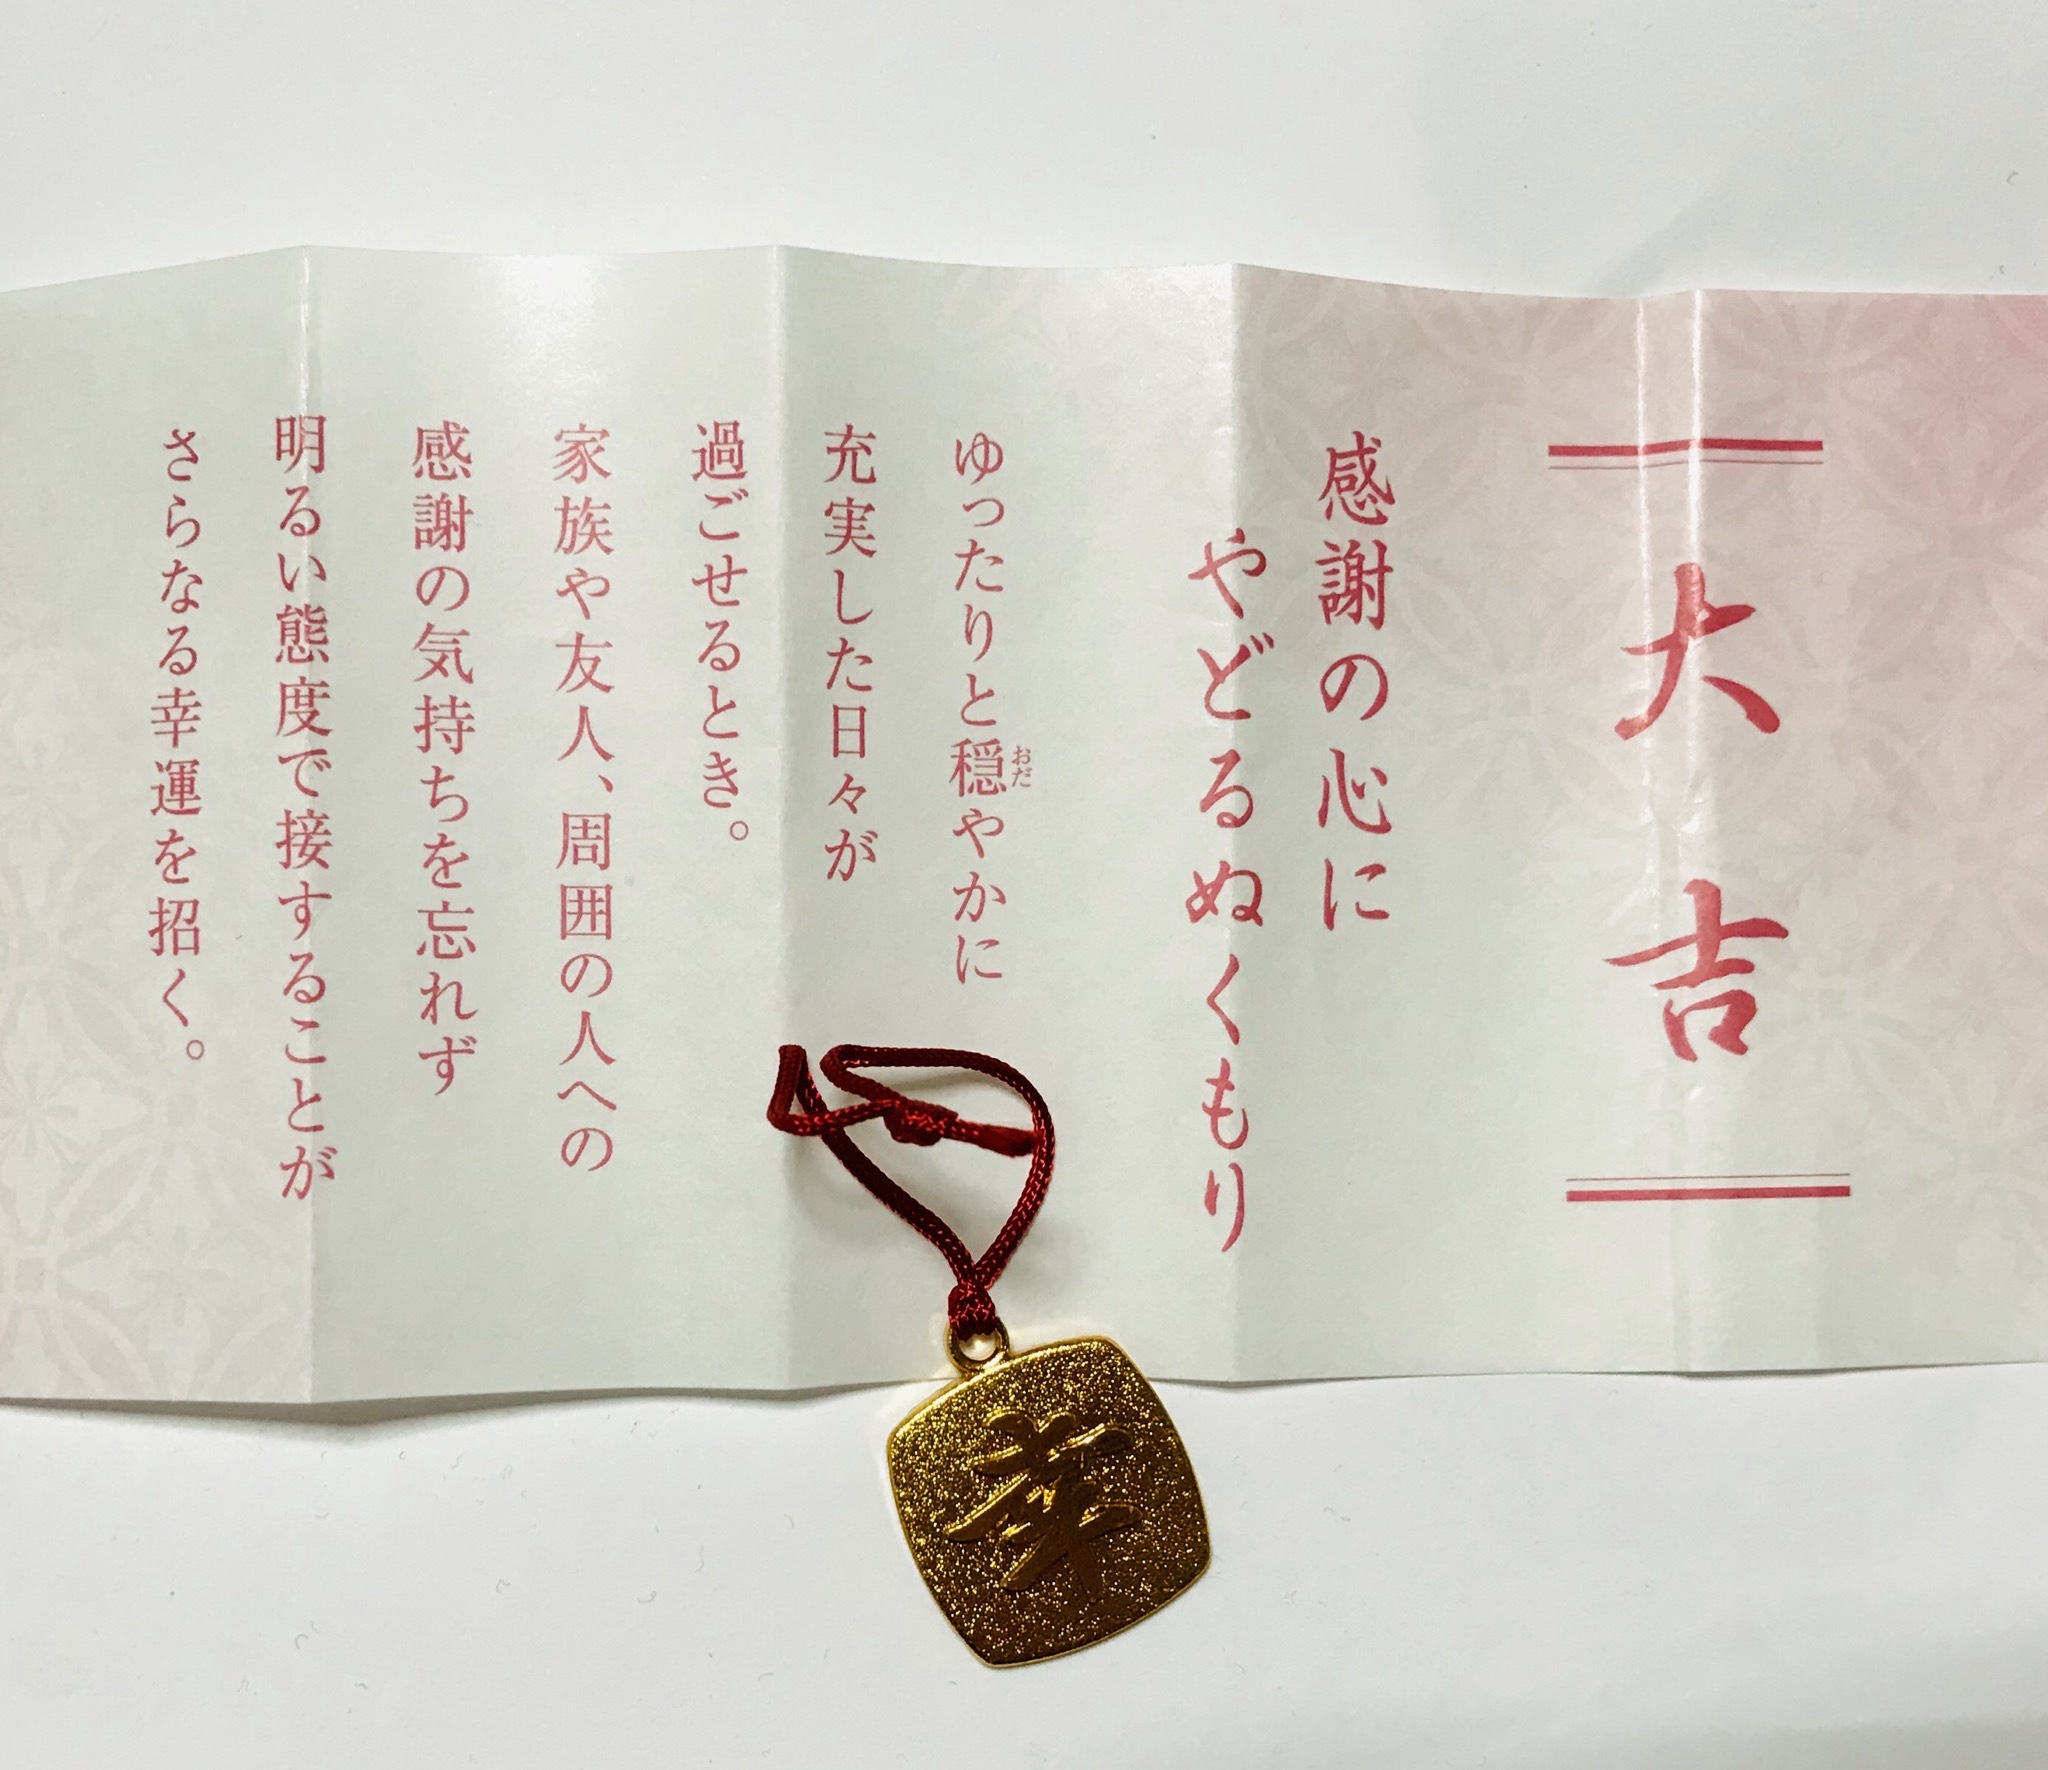 大吉
感謝の心に
やどるぬくもり
ゆったりと穏やかに
おだ
充実した日々が
過ごせるとき。
家族や友人、周囲の人への
感謝の気持ちを忘れず
明るい態度で接することが
さらなる幸運を招く。
幸